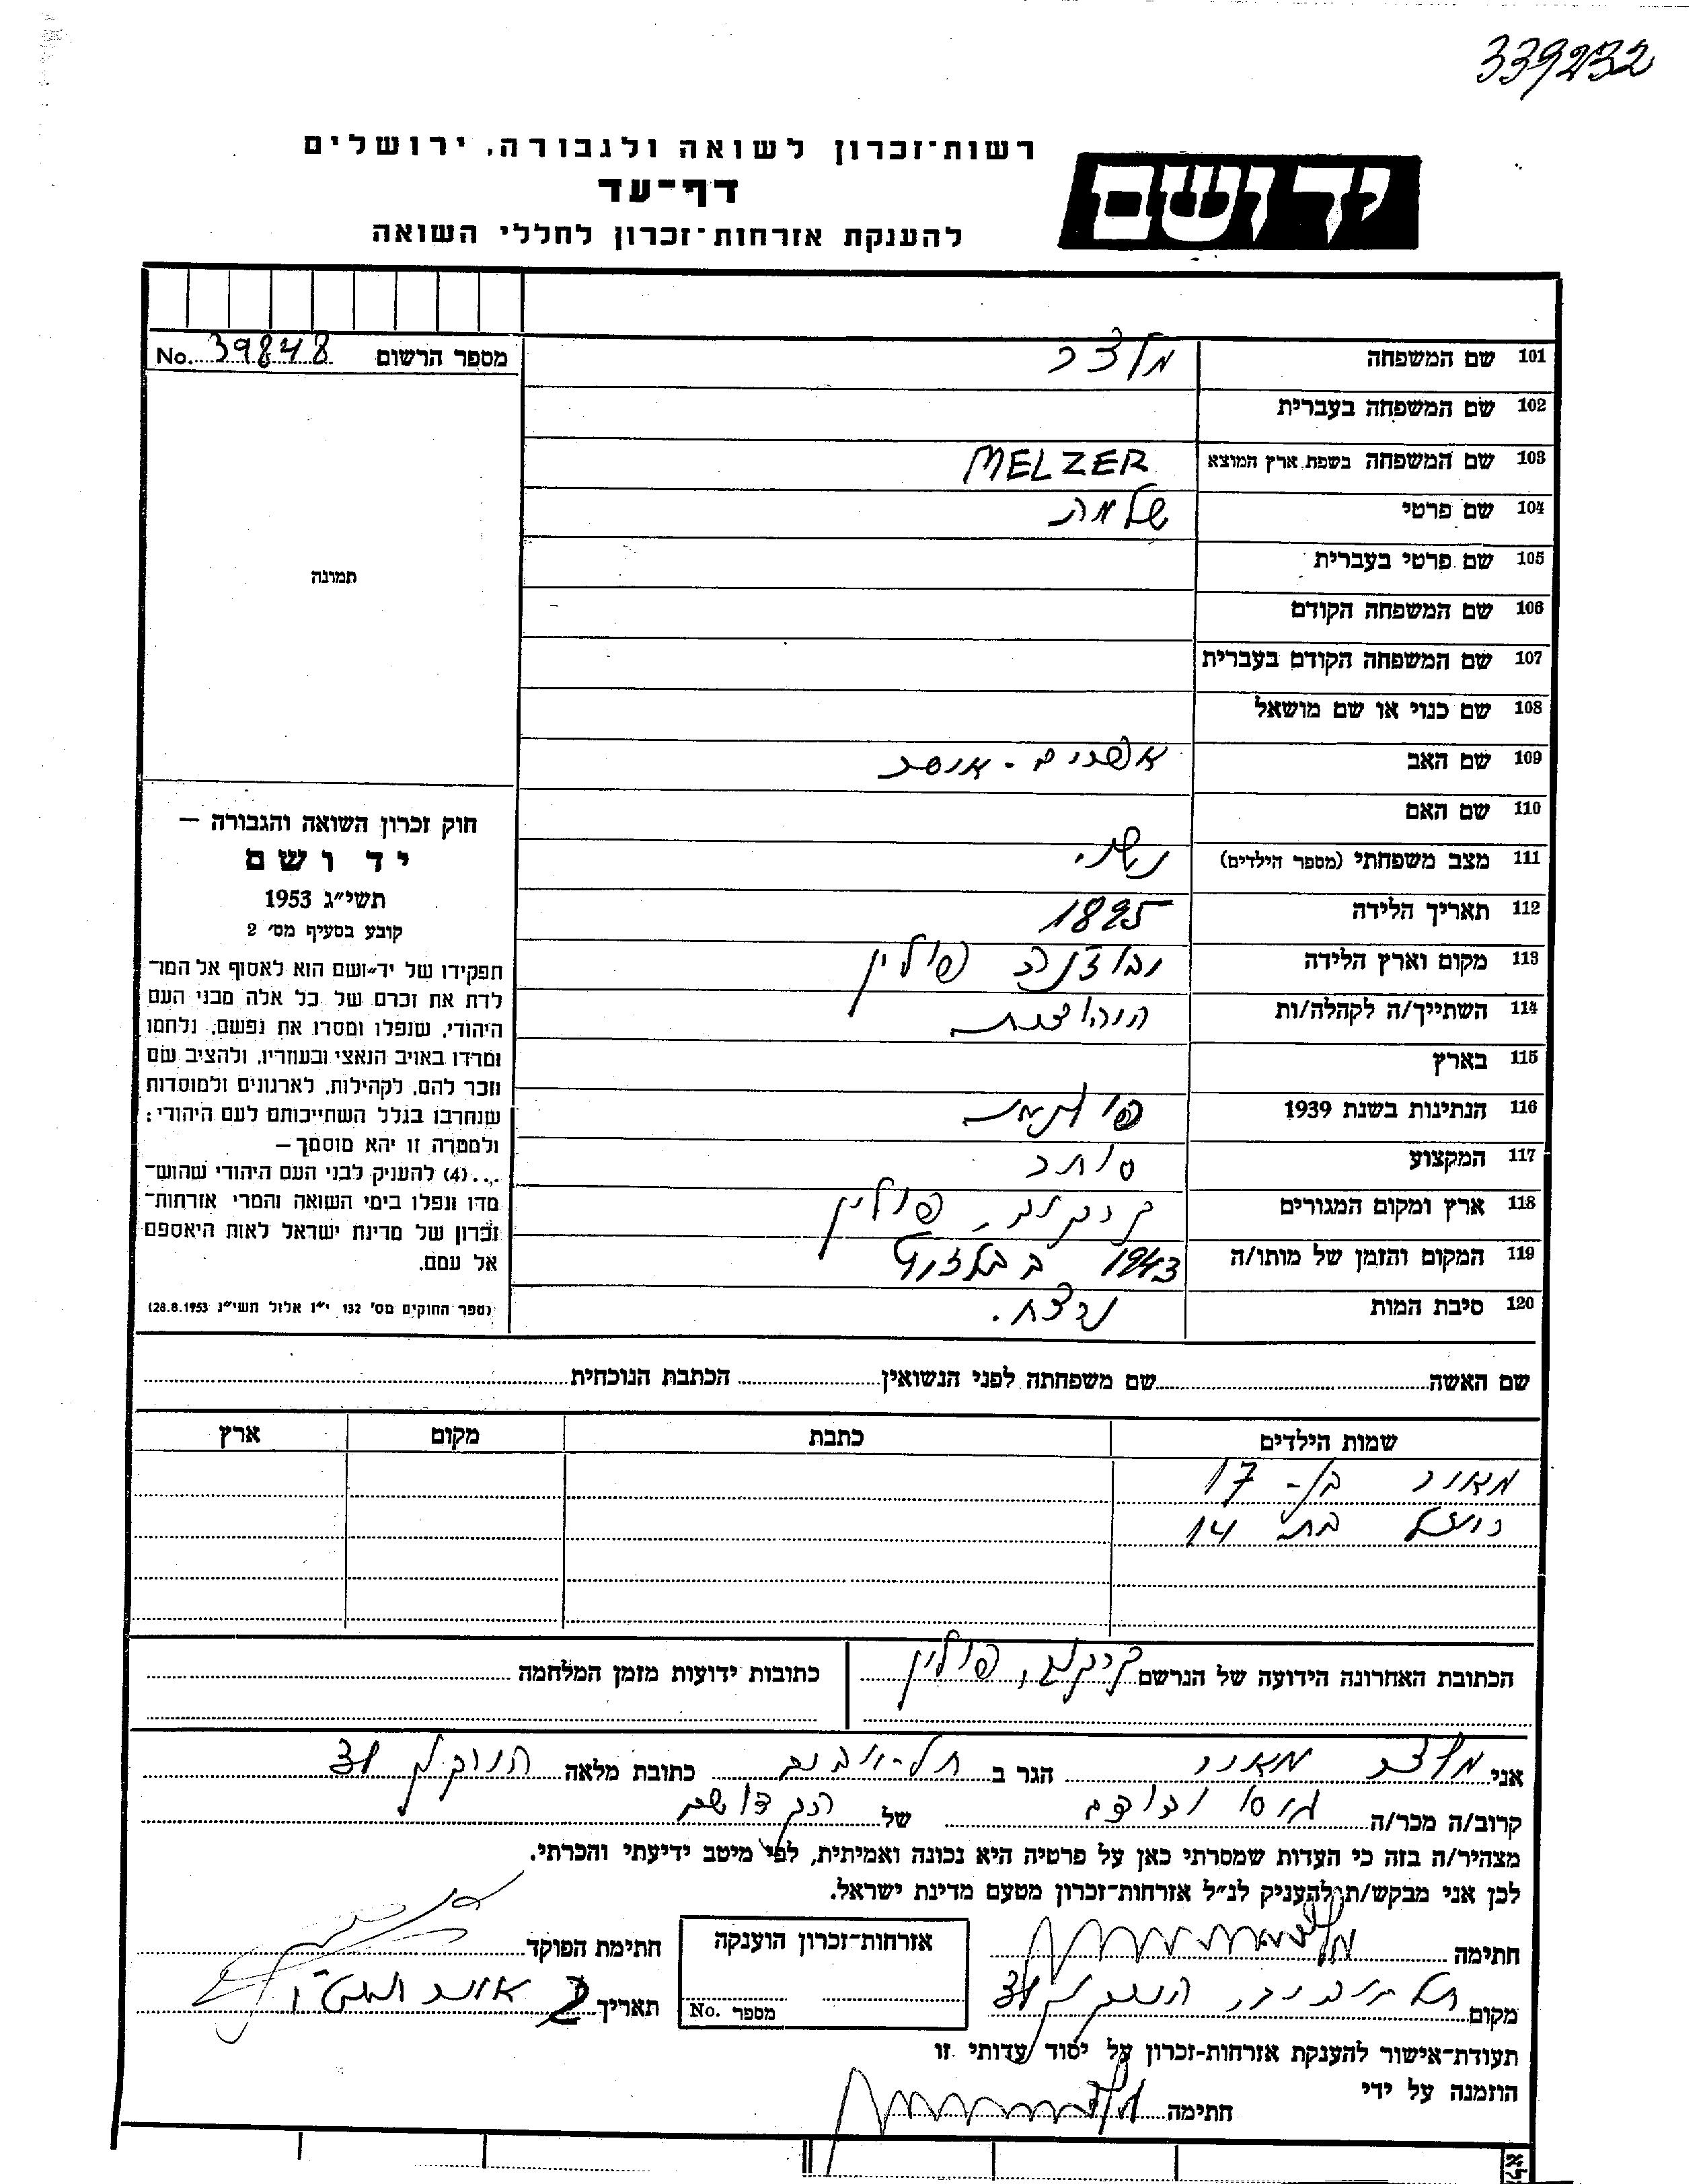 339232
רשות־זכרון לשואה ולגבורה, ירושלים
יד ושם
דף־עד
להענקת אזרחות־זכרון לחללי השואה
מספר הרשום No. 39848
101 שם המשפחה מלצר
102 שם המשפחה בעברית
103 שם המשפחה בשפת ארץ המוצא MELZER
104 שם פרטי שלמה
105 שם פרטי בעברית
106 שם המשפחה הקודם
107 שם המשפחה הקודם בעברית
108 שם כנוי או שם מושאל
109 שם האב אפרים - אוסר
110 שם האם
111 מצב משפחתי (מספר הילדים) נשוי
112 תאריך הלידה 1895
113 מקום וארץ הלידה פולין
114 השתייך/ה לקהלה/ות
115 בארץ
116 הנתינות בשנת 1939 פולנית
117 המקצוע סוחר
118 ארץ ומקום המגורים קרקוב, פולין
119 המקום והזמן של מותו/ה 1943 בבלזץ
120 סיבת המות נרצח.
תמונה
חוק זכרון השואה והגבורה —
יד ושם
תשי״ג 1953
קובע בסעיף מס׳ 2
תפקידו של יד־ושם הוא לאסוף אל המו־
לדת את זכרם של כל אלה מבני העם
היהודי, שנפלו ומסרו את נפשם, נלחמו
ומרדו באויב הנאצי ובעוזריו, ולהציב שם
וזכר להם, לקהילות, לארגונים ולמוסדות
שנחרבו בגלל השתייכותם לעם היהודי;
ולמטרה זו יהא מוסמך —
...(4) להעניק לבני העם היהודי שהוש־
מדו ונפלו בימי השואה והמרי אזרחות־
זכרון של מדינת ישראל לאות היאספם
אל עמם.
(ספר החוקים מס׳ 132 י״ז אלול תשי״ג 28.8.1953)
שם האשה שם משפחתה לפני הנשואין הכתבת הנוכחית
שמות הילדים כתבת מקום ארץ
מאיר בן - 17
רחל בת 14
הכתובת האחרונה הידועה של הנרשם קרקוב, פולין כתובות ידועות מזמן המלחמה
אני מלצר מאיר הגר ב תל-אביב כתובת מלאה הירקון
קרוב/ה מכר/ה של
מצהיר/ה בזה כי העדות שמסרתי כאן על פרטיה היא נכונה ואמיתית, לפי מיטב ידיעתי והכרתי.
לכן אני מבקש/ת להעניק לנ״ל אזרחות־זכרון מטעם מדינת ישראל.
חתימה אזרחות־זכרון הוענקה חתימת הפוקד
מקום תל אביב, הירקון מספר No. תאריך
תעודת־אישור להענקת אזרחות־זכרון על יסוד עדותי זו
הוזמנה על ידי
חתימה